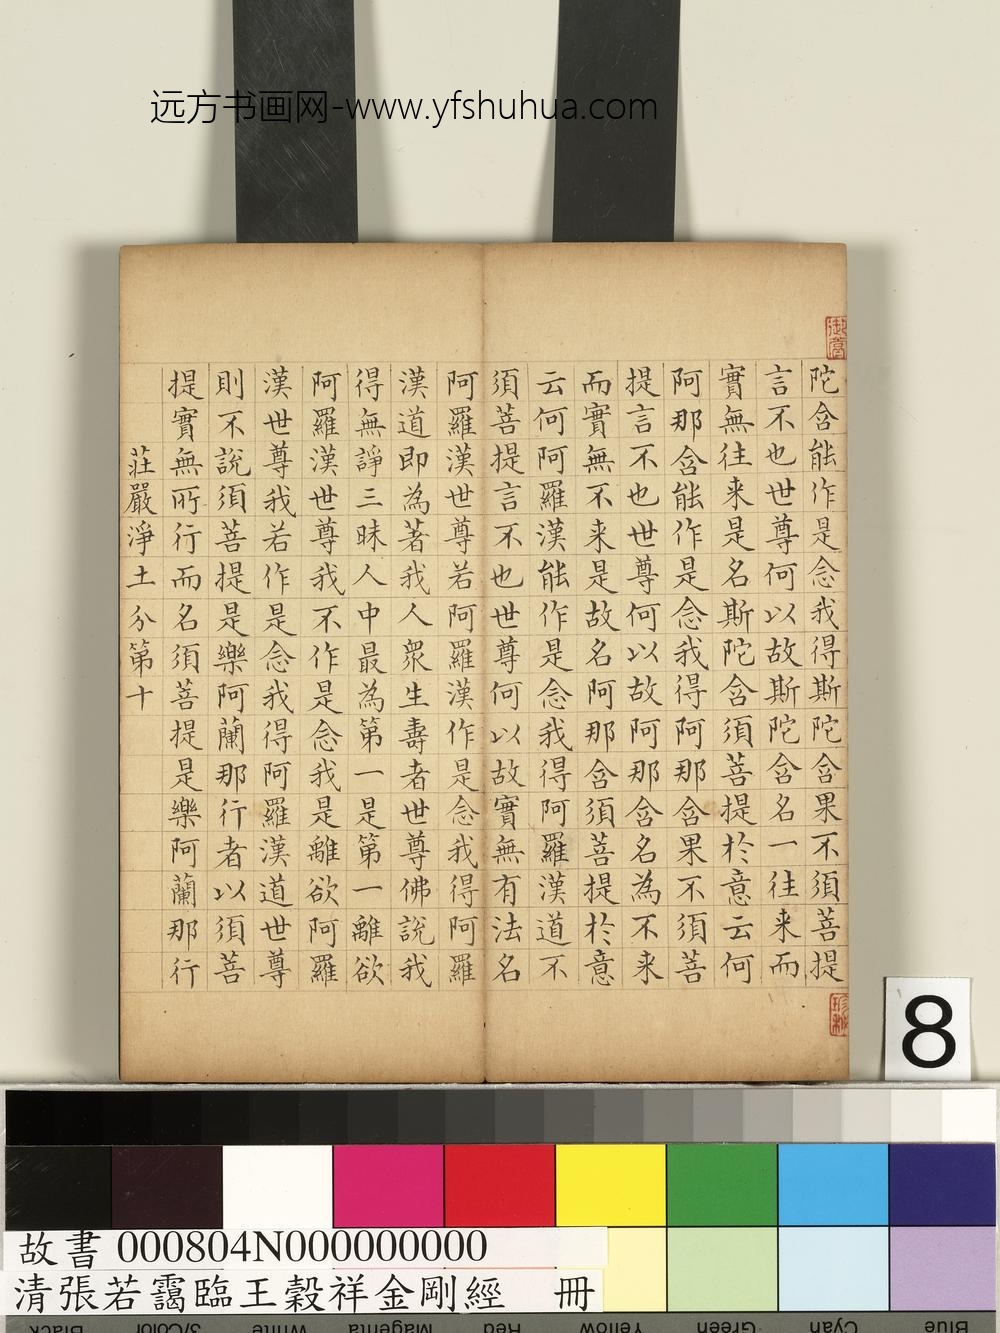 远方书画网-www.yfshuhua.com
陀含能作是念我得斯陀含果不須菩提
言不也世尊何以故斯陀含名一往来而
實無往来是名斯陀含須菩提扵意云何
阿那含能作是念我得阿那含果不須菩
提言不也世尊何以故阿那含名為不来
而實無不来是故名阿那含須菩提扵意
云何阿羅漢能作是念我得阿羅漢道不
須菩提言不也世尊何以故實無有法名
阿羅漢世尊若阿羅漢作是念我得阿羅
漢道即為著我人眾生壽者世尊佛說我
得無諍三昧人中最為第一是第一離欲
阿羅漢世尊我不作是念我是離欲阿羅
漢世尊我若作是念我得阿羅漢道世尊
則不說須菩提是樂阿蘭那行者以須菩
提實無所行而名須菩提是樂阿蘭那行
莊嚴淨土分第十
8
故書 000804N000000000
清張若靄臨王穀祥金剛經 冊
Black
3/Color
White
Magenta
Red
Yellow
Green
Cyan
Blue